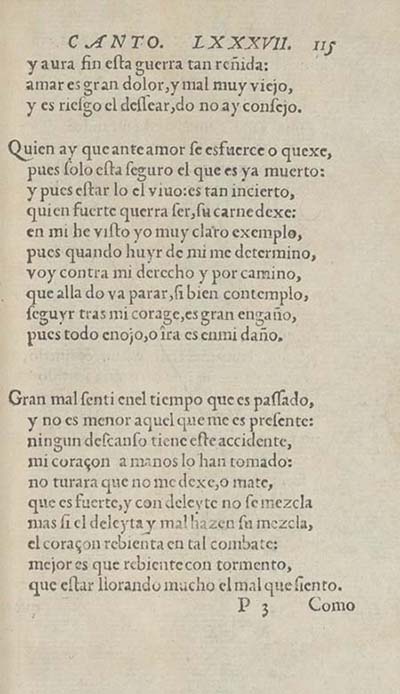 CANTO. LXXXVII. 115
y aura fin esta guerra tan reñida:
amar es gran dolor, y mal muy viejo,
y es riesgo el dessear, do no ay consejo.
Quien ay que ante amor se esfuerce o quexe,
pues solo esta seguro el que es ya muerto:
y pues estar lo el viuo: es tan incierto,
quien fuerte querra ser, su carne dexe:
en mi he visto yo muy claro exemplo,
pues quando huyr de mi me determino,
voy contra mi derecho y por camino,
que alla do va parar, si bien contemplo,
seguyr tras mi corage, es gran engaño,
pues todo enojo, o ira es enmi daño.
Gran mal senti enel tiempo que es passado,
y no es menor aquel que me es presente:
ningun descanso tiene este accidente,
mi coraçon a manos lo han tomado:
no turara que no me dexe, o mate,
que es fuerte, y con deleyte no se mezcla
mas si el deleyta y mal hazen su mezcla,
el coraçon rebienta en tal combate:
mejor es que rebiente con tormento,
que estar llorando mucho el mal que siento.
P 3 Como